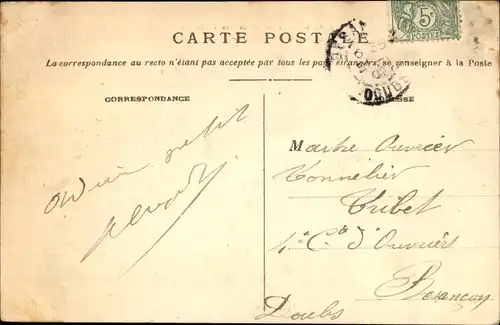 CARTE POSTALE
La correspondance au recto n'étant pas acceptée par tous les pays étrangers, se renseigner à la Poste
CORRESPONDANCE
5c
POSTES
DOUBS
petit
Maitre Ouvrier
Tonnelier
Tribet
4e Cie d'Ouvriers
Besançon
Doubs